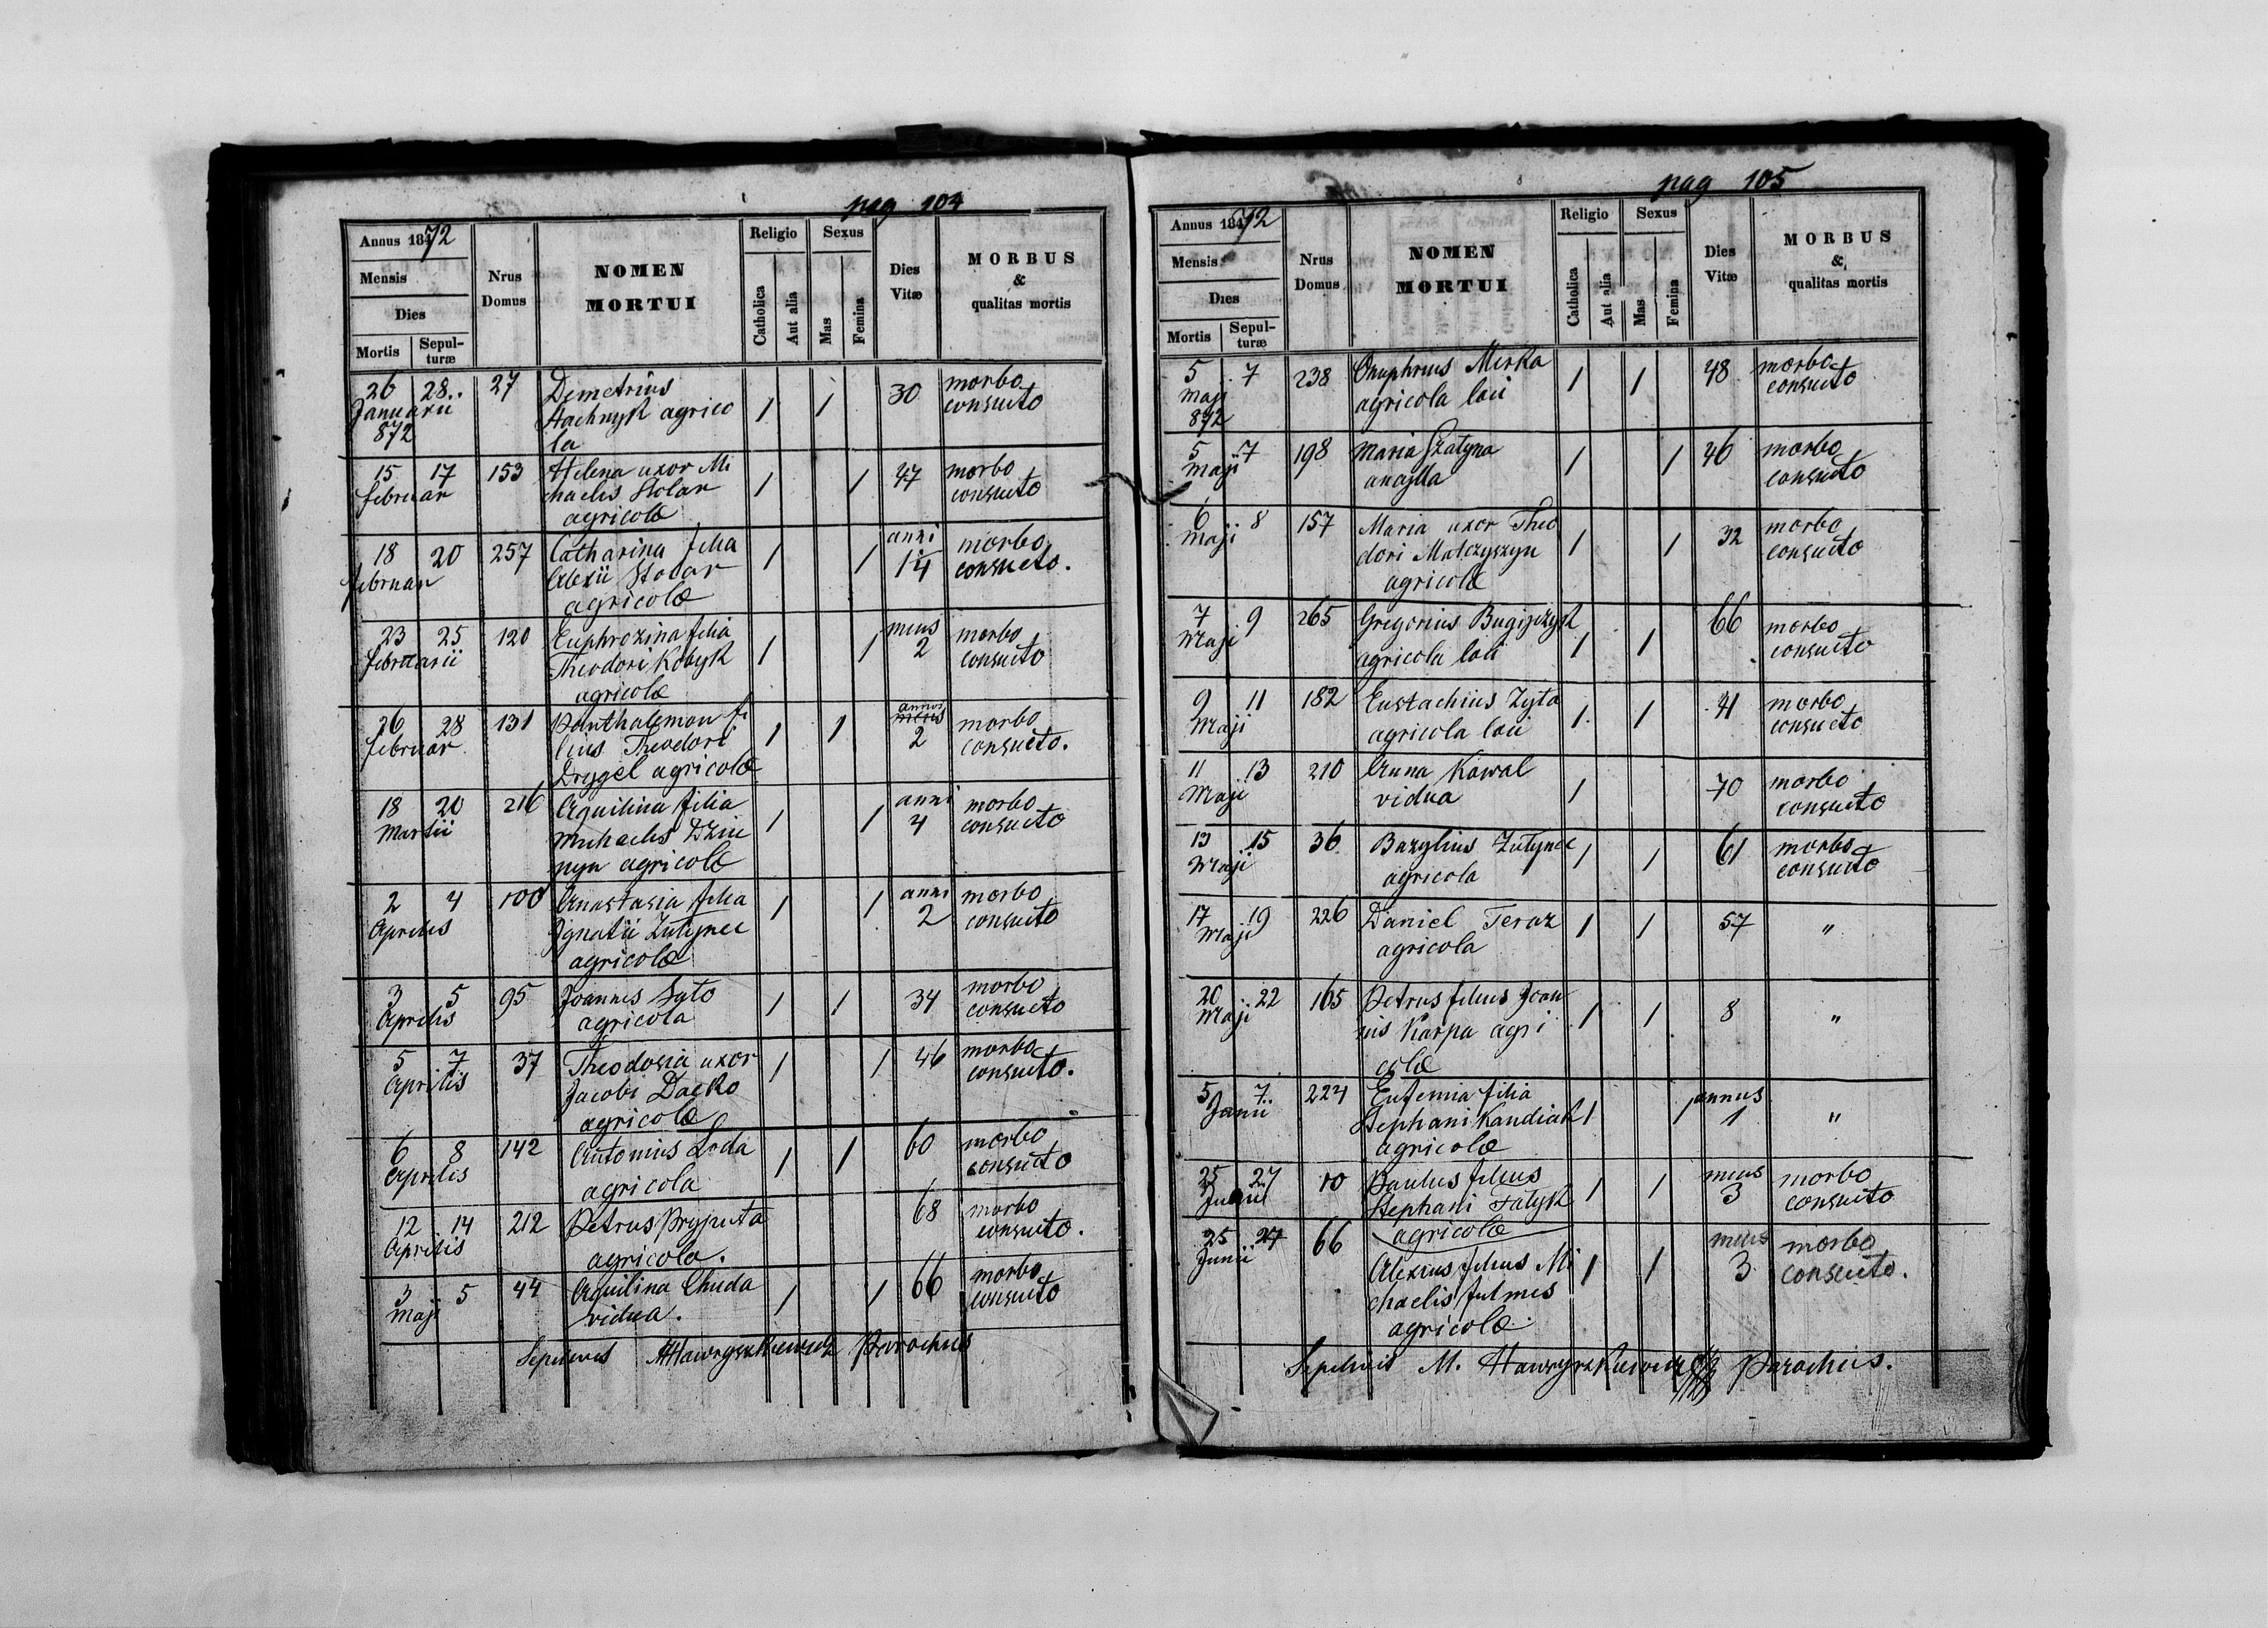 pag 104
Annus 1872 Nrus Domus NOMEN MORTUI Religio Sexus Dies Vitæ MORBUS & qualitas mortis
Mensis
Dies
Mortis Sepulturæ Catholica Aut alia Mas Femina
26 28.. 27 Demetrius 30 morbo
Januarii Stachnyk agrico / / consueto
872 la
15 17 153 Helena uxor Mi 47 morbo
februar chaelis Stolar / / consueto
agricolæ
18 20 257 Catharina filia anni morbo
februar Alexii Stolar / / 14 consueto.
agricolæ
23 25 120 Euphrozina filia mens morbo
februarii Theodori Kobyk / / 2 consueto
agricolæ
26 28 131 Panthalemon fi annos morbo
februar lius Theodori / / 2 consueto.
Drygel agricolæ
18 20 216 Aquilina filia anni morbo
Martii Michaelis / / 4 consueto
agricolæ
2 4 100 Anastasia filia anni morbo
Aprilis Ignatii Zutynec / / 2 consueto
agricolæ
3 5 95 Joannes morbo
Aprilis agricola / / 34 consueto
5 7 37 Theodosia uxor 46 morbo
Aprilis Jacobi Dacko / / consueto.
agricolæ
6 8 142 Antonius 60 morbo
Aprilis agricola / / consueto
12 14 212 Petrus Pryputa 68 morbo
Aprilis agricola. consueto.
3 5 44 Aquilina Chuda 66 morbo
Maji vidua. / / consueto
Sepelivit M Hawryszkiewicz Parochus
pag 105
Annus 1872 Nrus Domus NOMEN MORTUI Religio Sexus Dies Vitæ MORBUS & qualitas mortis
Mensis
Dies
Mortis Sepulturæ Catholica Aut alia Mas Femina
5 7 238 Onuphrius Mirka 48 morbo
Maji agricola loci / / consueto
872
5 7 198 Maria 46 morbo
Maji / / consueto
6 8 157 Maria uxor Theo 32 morbo
Maji dori Matczyszyn / / consueto
agricolæ
7 9 265 Gregorius 66 morbo
Maji agricola loci / / consueto
9 11 182 Eustachius Zyta 41 morbo
Maji agricola loci / / consueto
11 13 210 Anna Kowal 70 morbo
Maji vidua / consueto
13 15 36 Bazylius Zutynec 61 morbo
Maji agricola / / consueto
17 19 226 Daniel Teraz 57 "
Maji agricola / /
20 22 165 Petrus filius Joan 8 "
Maji nis Karpa agri / /
colæ
5 7 224 Eufemia filia annus
Junii Stephani Kandiak / / 1 "
agricolæ
25 27 10 Paulus filius mens morbo
Junii Stephani Fatyk / / 3 consueto
agricolæ
25 27 66 Alexius filius Mi mens morbo
Junii chaelis / / 3 consueto.
agricolæ.
Sepelivit M. Hawryszkiewicz Parochus.